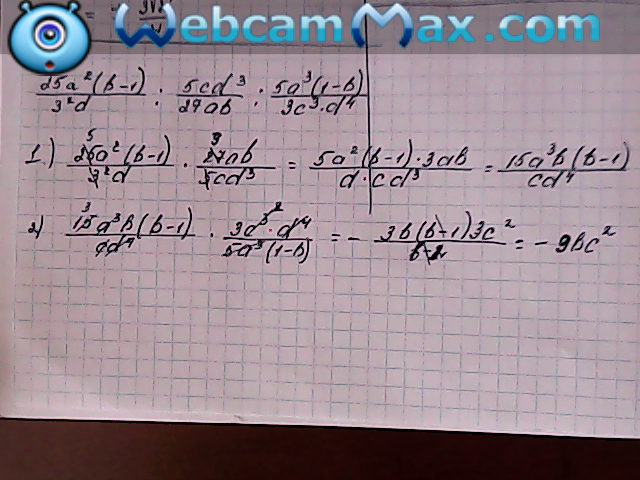 WebcamMax.com
25a²(b-1)/3²d : 5cd³/27ab : 5a³(1-b)/3c³·d⁴
1) 25a²(b-1)/3²d · 27ab/5cd³ = 5a²(b-1)·3ab/d·cd³ = 15a³b(b-1)/cd⁴
2) 15a³b(b-1)/cd⁴ · 3c³·d⁴/5a³(1-b) = - 3b(b-1)3c²/b-1 = -9bc²